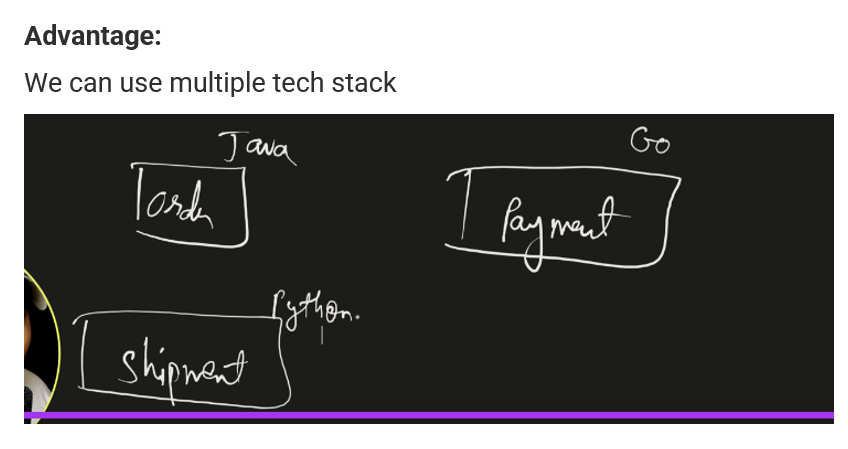 Advantage:
We can use multiple tech stack
Java
Go
order
Payment
Python.
Shipment